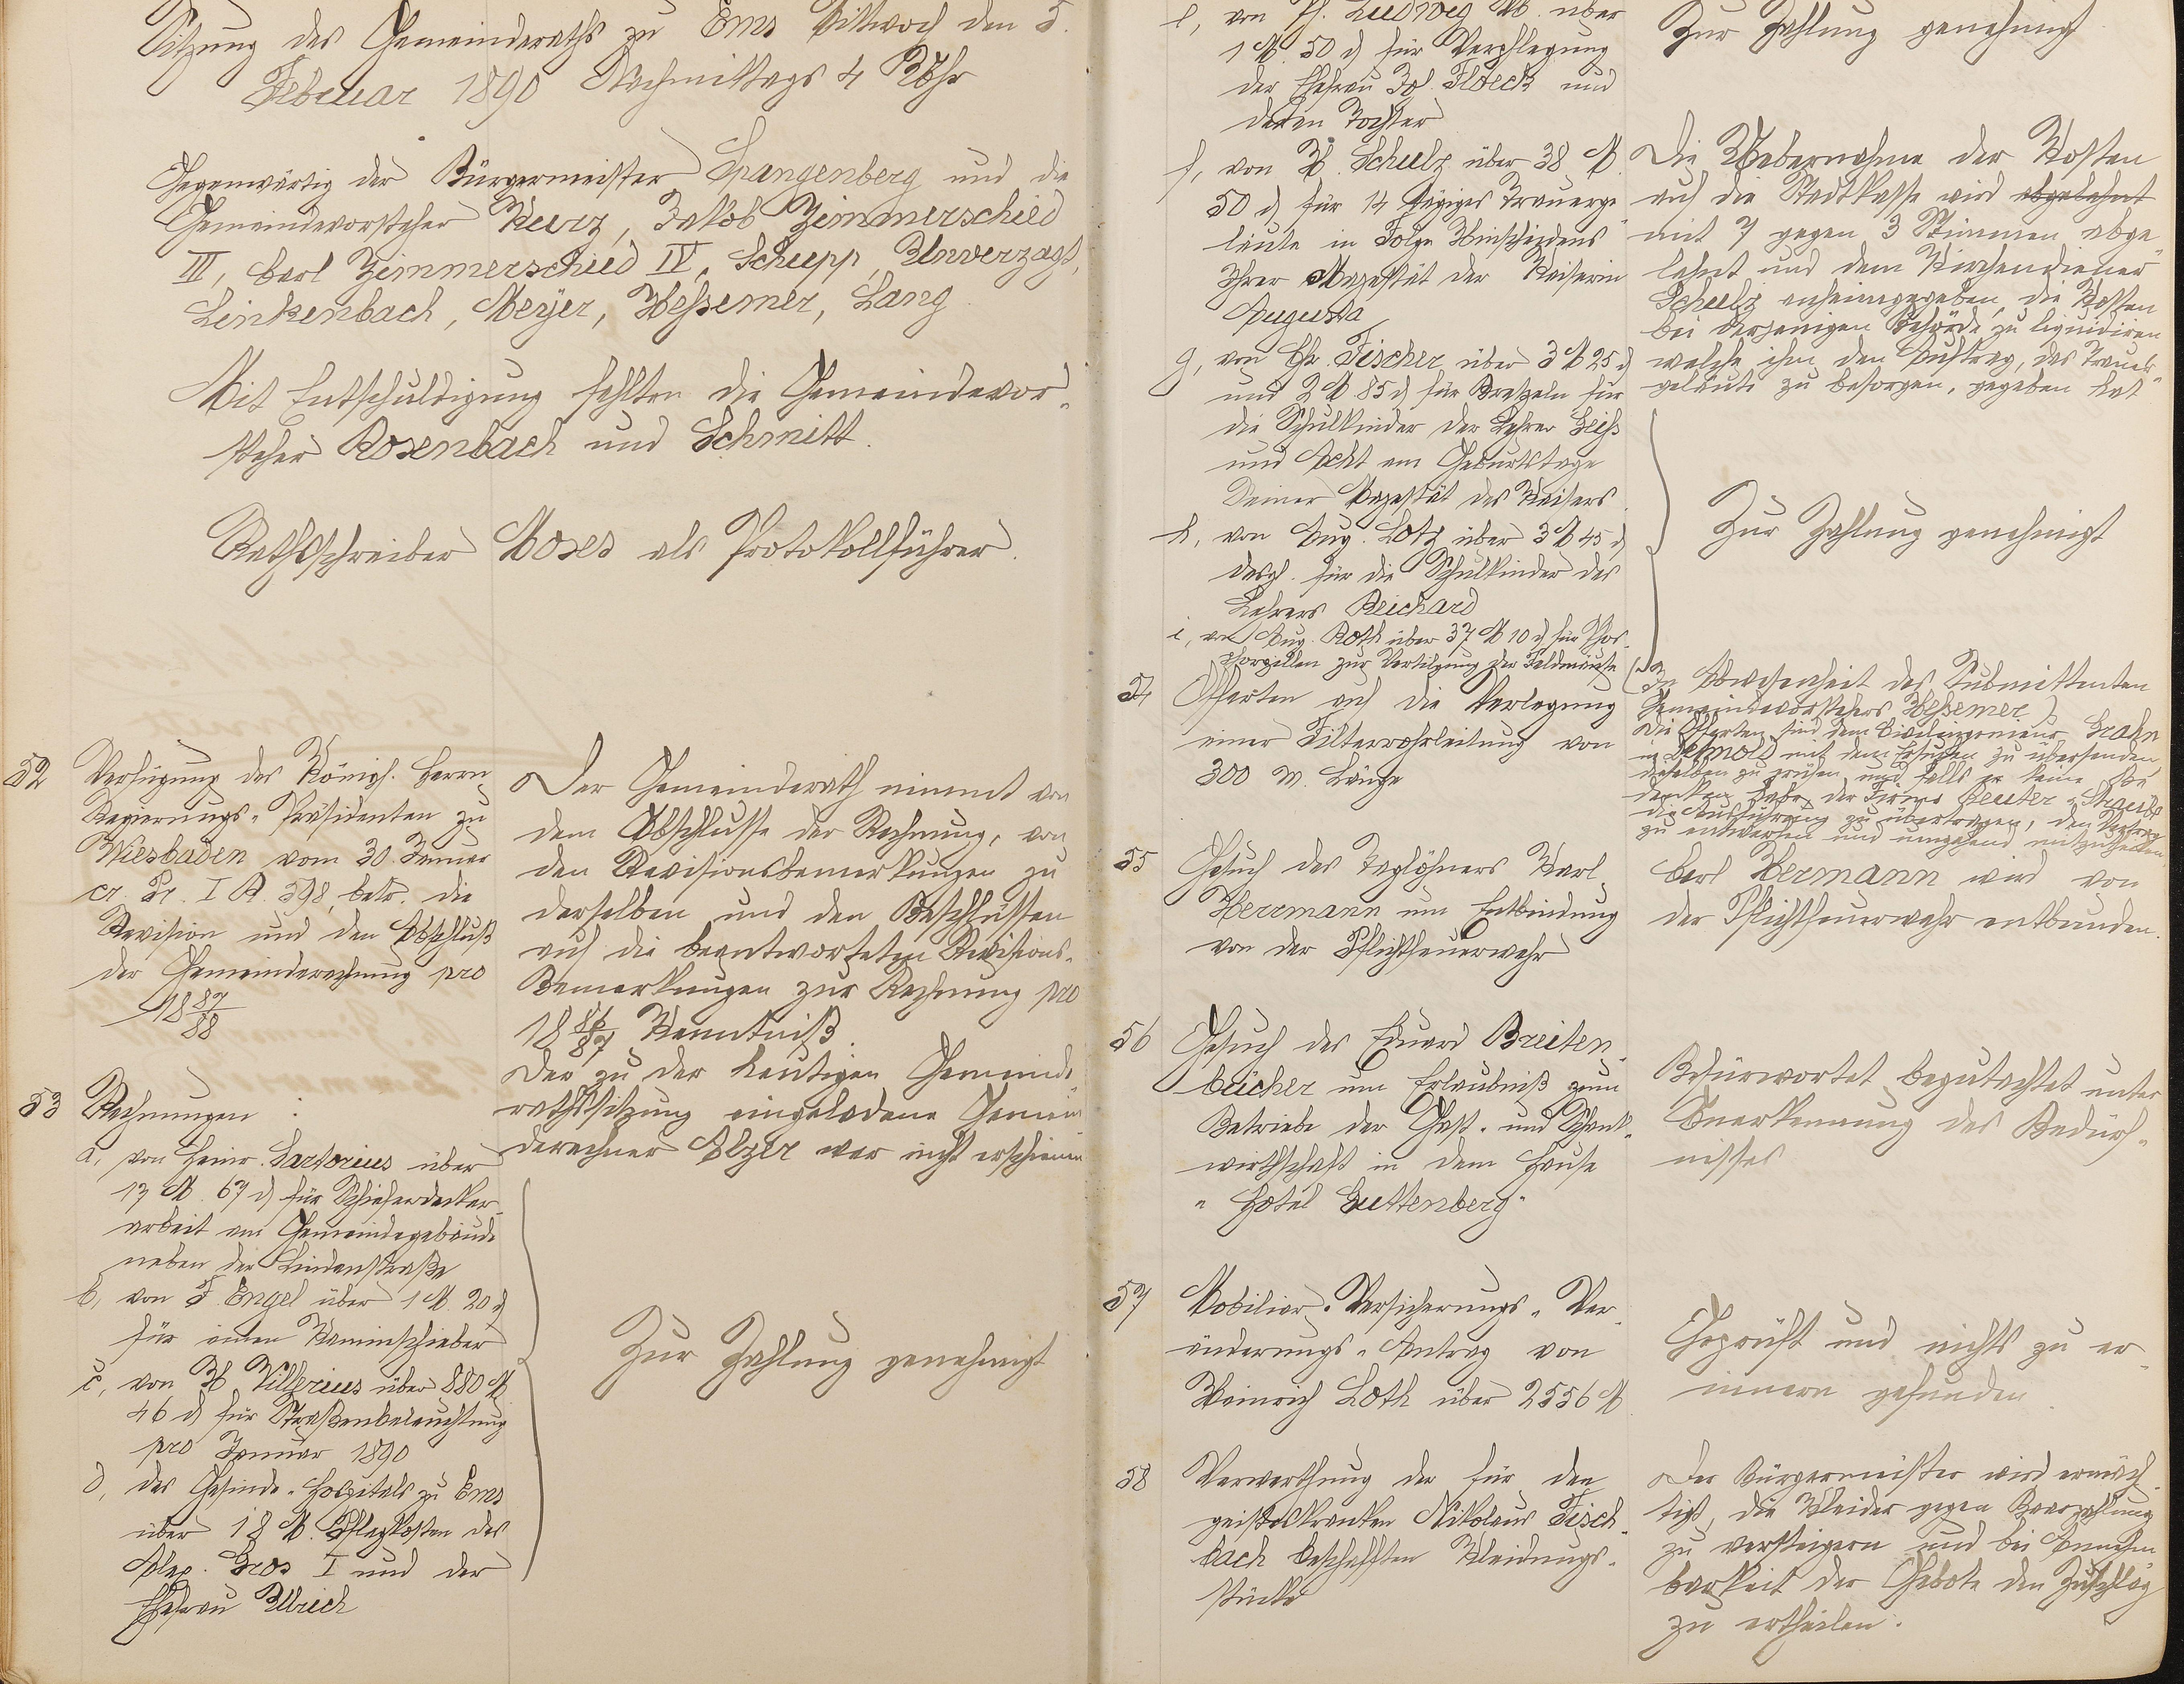 Sitzung des Gemeinderaths zu Ems Mittwoch den 5.
Februar 1890 Nachmittags 4 Uhr
Gegenwärtig der Bürgermeister Spangenberg und die
Gemeindevorsteher Kurz, Jakob Zimmerschied
III, Carl Zimmerschied IV, Schupp, Unverzagt,
Linkenbach, Meyer, Heßemer, Lang
Mit Entschuldigung fehlten die Gemeindevor-
steher Rosenbach und Schmitt.
Rathsschreiber Moses als Protokollführer.
52 Verfügung des Königl. Herrn
Regierungs-Präsidenten zu
Wiesbaden vom 30. Januar
cr. Pr. I A. 398, betr. die
Revision und den Abschluß
der Gemeinderechnung pro
1887/88
Der Gemeinderath nimmt von
dem Abschlusse der Rechnung, von
den Revisionsbemerkungen zu
derselben und den Beschlüssen
auf die beantworteten Revisions-
Bemerkungen zur Rechnung pro
1886/87 Kenntniß.
Der zu der heutigen Gemeinde-
rathssitzung eingeladene Gemein
derechner Elzer war nicht erschienen
53 Rechnungen:
a, von Heinr. Sartorius über
17 M. 67 d für Schieferdecker-
arbeit am Gemeindegebäude
neben der Lindenstraße
b, von F. Engel über 1 M. 20 d
für einen Kaminschieber
c, von H. Villerius über 880 M
46 d für Straßenbeleuchtung
pro Januar 1890
d, des Gesinde-Hospitals zu Ems
über 18 M. Pflegkosten des
Alex. Gros I und der
Ehefrau Ulrich
Zur Zahlung genehmigt
e, von Ph. Ludwig Wb. über
1 M. 50 d für Verpflegung
der Ehefrau Jos. Floeck und
deren Tochter
Zur Zahlung genehmigt
f, von H. Schulz über 38 M.
50 d für 14 tägiges Trauerge-
läute in Folge Hinscheidens
Ihrer Majestät der Kaiserin
Augusta
Die Uebernahme der Kosten
auf die Stadtkasse wird abgelehnt
mit 7 gegen 3 Stimmen abge-
lehnt und dem Kirchendiener
Schulz anheimgegeben, die Kosten
bei derjenigen Behörde zu liquidiren
welche ihm den Auftrag, das Trauer-
geläute zu besorgen, gegeben hat
g, von Chr. Fischer über 3 M 25 d
und 2 M 85 d für Bretzeln für
die Schulkinder der Lehrer Geiß
und Acht am Geburtstage
Seiner Majestät des Kaisers
h, von Aug. Lotz über 3 M 45 d
desgl. für die Schulkinder des
Lehrers Reichard
i, von Aug. Roth über 37 M 10 d für Phos-
phorpillen zur Vertilgung der Feldmäuse
Zur Zahlung genehmigt
54 Offerten auf die Verlegung
einer Filterrohrleitung von
300 m. Länge
(In Abwesenheit des Submittenten
Gemeindevorstehers Heßemer)
Die Offerten sind dem Civilingenieur Grahn
in Detmold mit dem Ersuchen zu übersenden,
dieselben zu prüfen und falls er keine Be-
denken habe, der Firma Reuter & Straube
die Ausführung zu übertragen, den Vertrag
zu entwerfen und umgehend mitzutheilen
55 Gesuch des Taglöhners Karl
Herrmann um Entbindung
von der Pflichtfeuerwehr
Carl Hermann wird von
der Pflichtfeuerwehr entbunden.
56 Gesuch des Eduard Breiten-
bücher um Erlaubniß zum
Betriebe der Gast- und Schank-
wirthschaft in dem Hause
"Hotel Guttenberg"
Befürwortet begutachtet unter
Anerkennung des Bedürf-
nisses
57 Mobiliar-Versicherungs-Ver-
änderungs-Antrag von
Heinrich Loth über 2556 M
Geprüft und nichts zu er-
innern gefunden.
58 Verwerthung der für den
geisteskranken Nikolaus Fisch-
bach beschafften Kleidungs-
stücke
Der Bürgermeister wird ermäch-
tigt, die Kleider gegen Baarzahlung
zu versteigern und bei Annehm
barkeit der Gebote den Zuschlag
zu ertheilen.